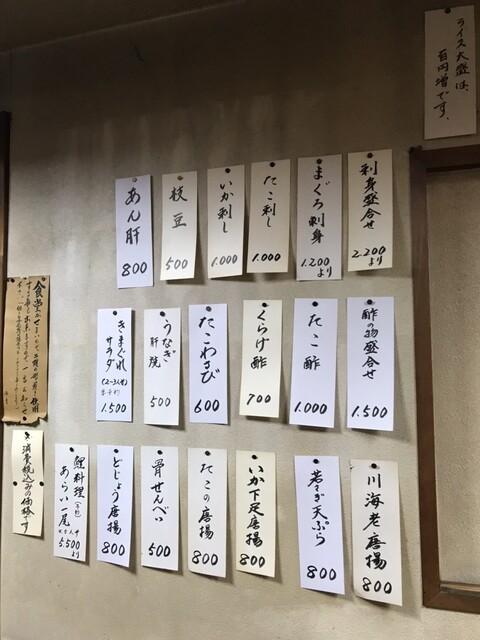 ライス大盛は、
百円増です。
刺身盛合せ
2.200
より
まぐろ刺身
1.200
より
たこ刺し
1.000
いか刺し
1.000
枝豆
500
あん肝
800
酢の物盛合せ
1.500
たこ酢
1.000
くらげ酢
700
たこわさび
600
うなぎ
肝焼
500
きまぐれ
サラダ
(2~3人分)
1.500
川海老唐揚
800
若さぎ天ぷら
800
いか下足唐揚
800
たこの唐揚
800
骨せんべい
500
どじょう唐揚
800
鯉料理
あらい一尾
5.500
より
消費税込みの価格です